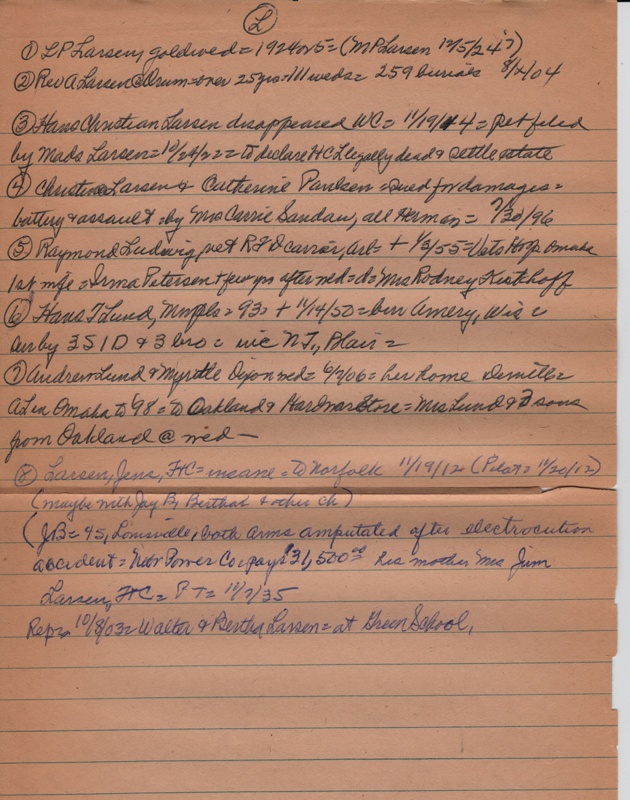 L
① LP Larsen, goldwed = 1924 or 5 = (MP Larsen 12/5/24 ?)
② Rev A Larsen @ Orum = over 25 yrs = 111 weds = 259 burials 8/4/04
③ Hans Christian Larsen disappeared WC = 11/19/14 = pet filed
by Mads Larsen = 10/24/22 = to declare HCL legally dead & settle estate
④ Christine Larsen & Catherine Paulsen = sued for damages =
battery & assault = by Mrs Carrie Sandau, all Herman = 7/30/96
⑤ Raymond Ludwig, ret RFD carrier, Arl = + 1/3/55 = Vets Hosp Omaha
1st wife = Irma Petersen + few yrs after wed = d = Mrs Rodney Kisthoff
⑥ Hans T Lund, Mnpls = 93 = + 11/14/50 = bur Amery, Wis =
surby 3S 1D & 3 bro = inc NT., Blair =
⑦ Andrew Lund & Myrtle Dixon wed = 6/7/06 = her home =
AL in Omaha to '98 = to Oakland & Hardwar Store = Mrs Lund & 2 sons
from Oakland @ wed —
⑧ Larsen, Jens, FtC = insane = to Norfolk 11/19/12 (Pilot = 11/20/12)
(maybe with Jay B, Bertha & other ch)
(JB = 45, Louisville, both arms amputated after electrocution
accident = Nebr Power Co pays $31,500.00 his mother Mrs Jim
Larsen, FtC = PT = 11/7/35
Rep = 10/8/03 = Walter & Bertha Larsen = at Green School,